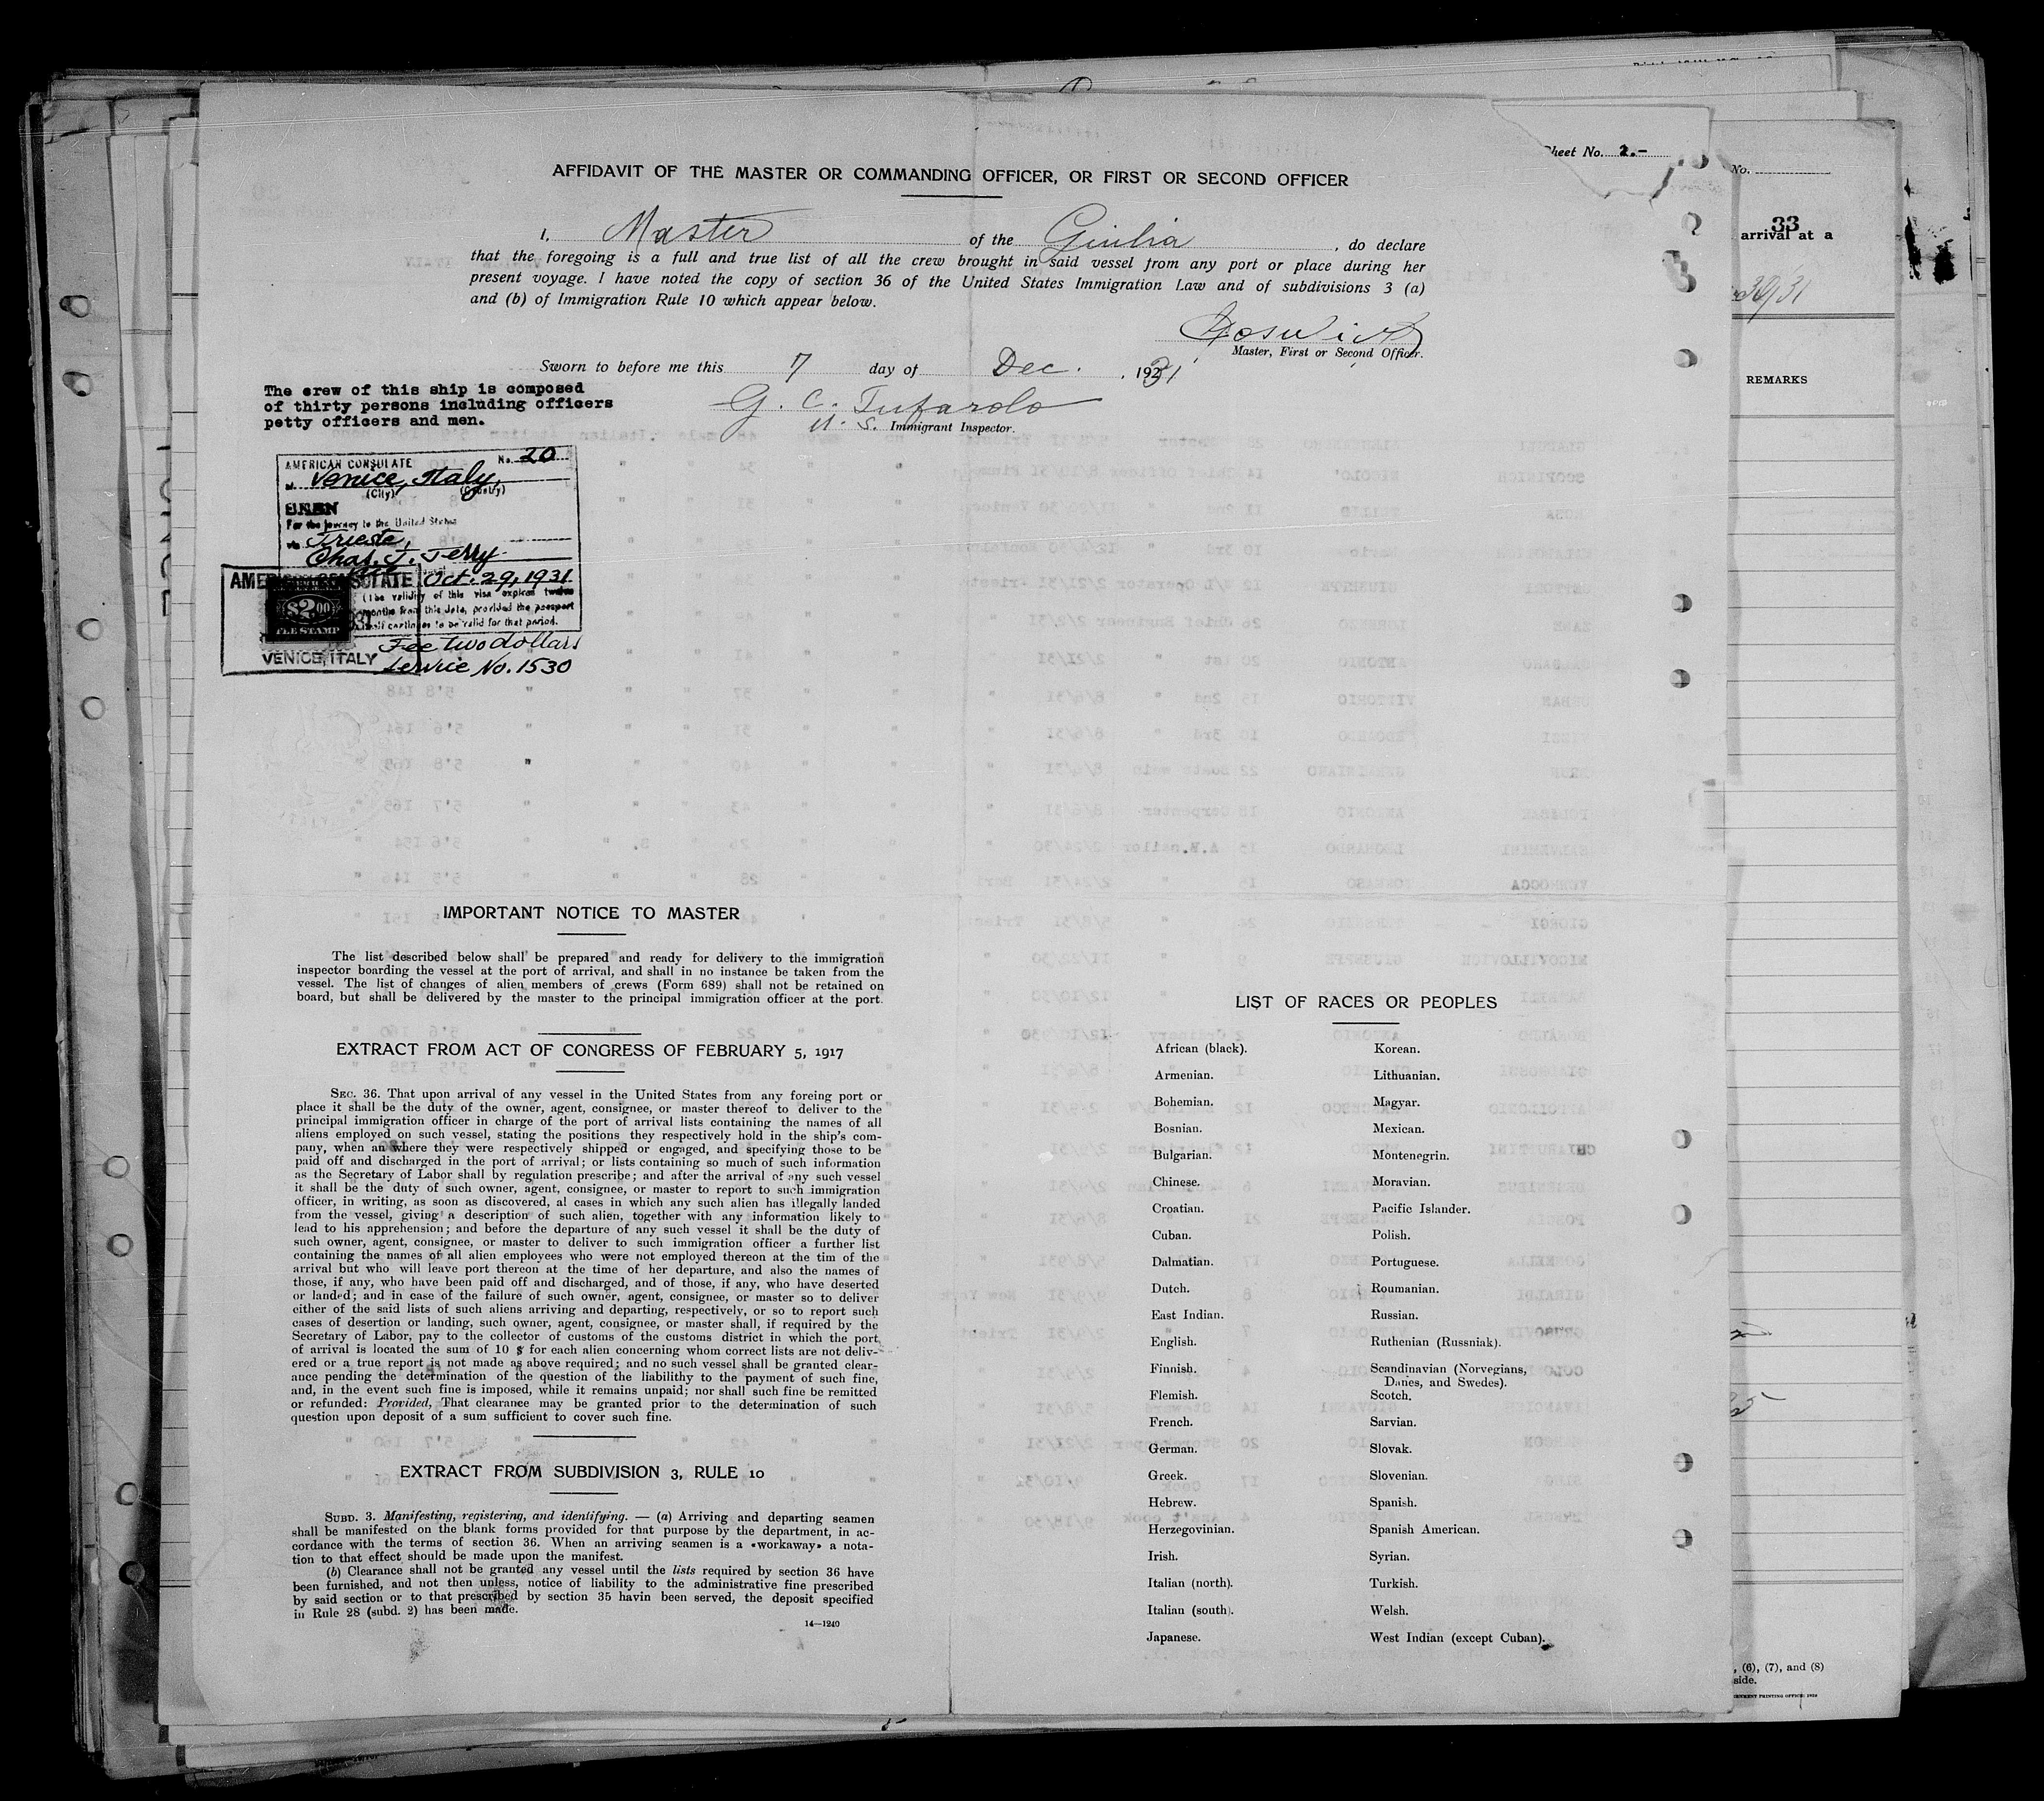 Sheet No. 2.-
AFFIDAVIT OF THE MASTER OR COMMANDING OFFICER, OR FIRST OR SECOND OFFICER
I, Master of the Giulia, do declare
that the foregoing is a full and true list of all the crew brought in said vessel from any port or place during her
present voyage. I have noted the copy of section 36 of the United States Immigration Law and of subdivisions 3 (a)
and (b) of Immigration Rule 10 which appear below.
Master, First or Second Officer.
Sworn to before me this 7 day of Dec. , 1931
G. C. Tufarolo
U. S. Immigrant Inspector.
The crew of this ship is composed
of thirty persons including officers
petty officers and men.
AMERICAN CONSULATE No. 20
at Venice, Italy,
(City) (Country)
SEEN
For the journey to the United States
via Trieste,
Chas. T. Terry
Vice
AMERICAN CONSULATE Oct. 29, 1931
(The validity of this visa expires twelve
months from this date, provided the passport
continues to be valid for that period.
$2.00
FEE STAMP
Fee two dollars
VENICE, ITALY
Service No. 1530
IMPORTANT NOTICE TO MASTER
The list described below shall be prepared and ready for delivery to the immigration
inspector boarding the vessel at the port of arrival, and shall in no instance be taken from the
vessel. The list of changes of alien members of crews (Form 689) shall not be retained on
board, but shall be delivered by the master to the principal immigration officer at the port.
EXTRACT FROM ACT OF CONGRESS OF FEBRUARY 5, 1917
SEC. 36. That upon arrival of any vessel in the United States from any foreing port or
place it shall be the duty of the owner, agent, consignee, or master thereof to deliver to the
principal immigration officer in charge of the port of arrival lists containing the names of all
aliens employed on such vessel, stating the positions they respectively hold in the ship's com-
pany, when an where they were respectively shipped or engaged, and specifying those to be
paid off and discharged in the port of arrival; or lists containing so much of such information
as the Secretary of Labor shall by regulation prescribe; and after the arrival of any such vessel
it shall be the duty of such owner, agent, consignee, or master to report to such immigration
officer, in writing, as soon as discovered, al cases in which any such alien has illegally landed
from the vessel, giving a description of such alien, together with any information likely to
lead to his apprehension; and before the departure of any such vessel it shall be the duty of
such owner, agent, consignee, or master to deliver to such immigration officer a further list
containing the names of all alien employees who were not employed thereon at the tim of the
arrival but who will leave port thereon at the time of her departure, and also the names of
those, if any, who have been paid off and discharged, and of those, if any, who have deserted
or landed; and in case of the failure of such owner, agent, consignee, or master so to deliver
either of the said lists of such aliens arriving and departing, respectively, or so to report such
cases of desertion or landing, such owner, agent, consignee, or master shall, if required by the
Secretary of Labor, pay to the collector of customs of the customs district in which the port
of arrival is located the sum of 10 $ for each alien concerning whom correct lists are not deliv-
ered or a true report is not made as above required; and no such vessel shall be granted clear-
ance pending the determination of the question of the liabilithy to the payment of such fine,
and, in the event such fine is imposed, while it remains unpaid; nor shall such fine be remitted
or refunded: Provided, That clearance may be granted prior to the determination of such
question upon deposit of a sum sufficient to cover such fine.
EXTRACT FROM SUBDIVISION 3, RULE 10
SUBD. 3. Manifesting, registering, and identifying. — (a) Arriving and departing seamen
shall be manifested on the blank forms provided for that purpose by the department, in ac-
cordance with the terms of section 36. When an arriving seamen is a «workaway» a nota-
tion to that effect should be made upon the manifest.
(b) Clearance shall not be granted any vessel until the lists required by section 36 have
been furnished, and not then unless, notice of liability to the administrative fine prescribed
by said section or to that prescribed by section 35 havin been served, the deposit specified
in Rule 28 (subd. 2) has been made.
14—1240
LIST OF RACES OR PEOPLES
African (black).
Armenian.
Bohemian.
Bosnian.
Bulgarian.
Chinese.
Croatian.
Cuban.
Dalmatian.
Dutch.
East Indian.
English.
Finnish.
Flemish.
French.
German.
Greek.
Hebrew.
Herzegovinian.
Irish.
Italian (north).
Italian (south).
Japanese.
Korean.
Lithuanian.
Magyar.
Mexican.
Montenegrin.
Moravian.
Pacific Islander.
Polish.
Portuguese.
Roumanian.
Russian.
Ruthenian (Russniak).
Scandinavian (Norvegians,
Danes, and Swedes).
Scotch.
Sarvian.
Slovak.
Slovenian.
Spanish.
Spanish American.
Syrian.
Turkish.
Welsh.
West Indian (except Cuban).
No.
33
arrival at a
REMARKS
, (6), (7), and (8)
side.